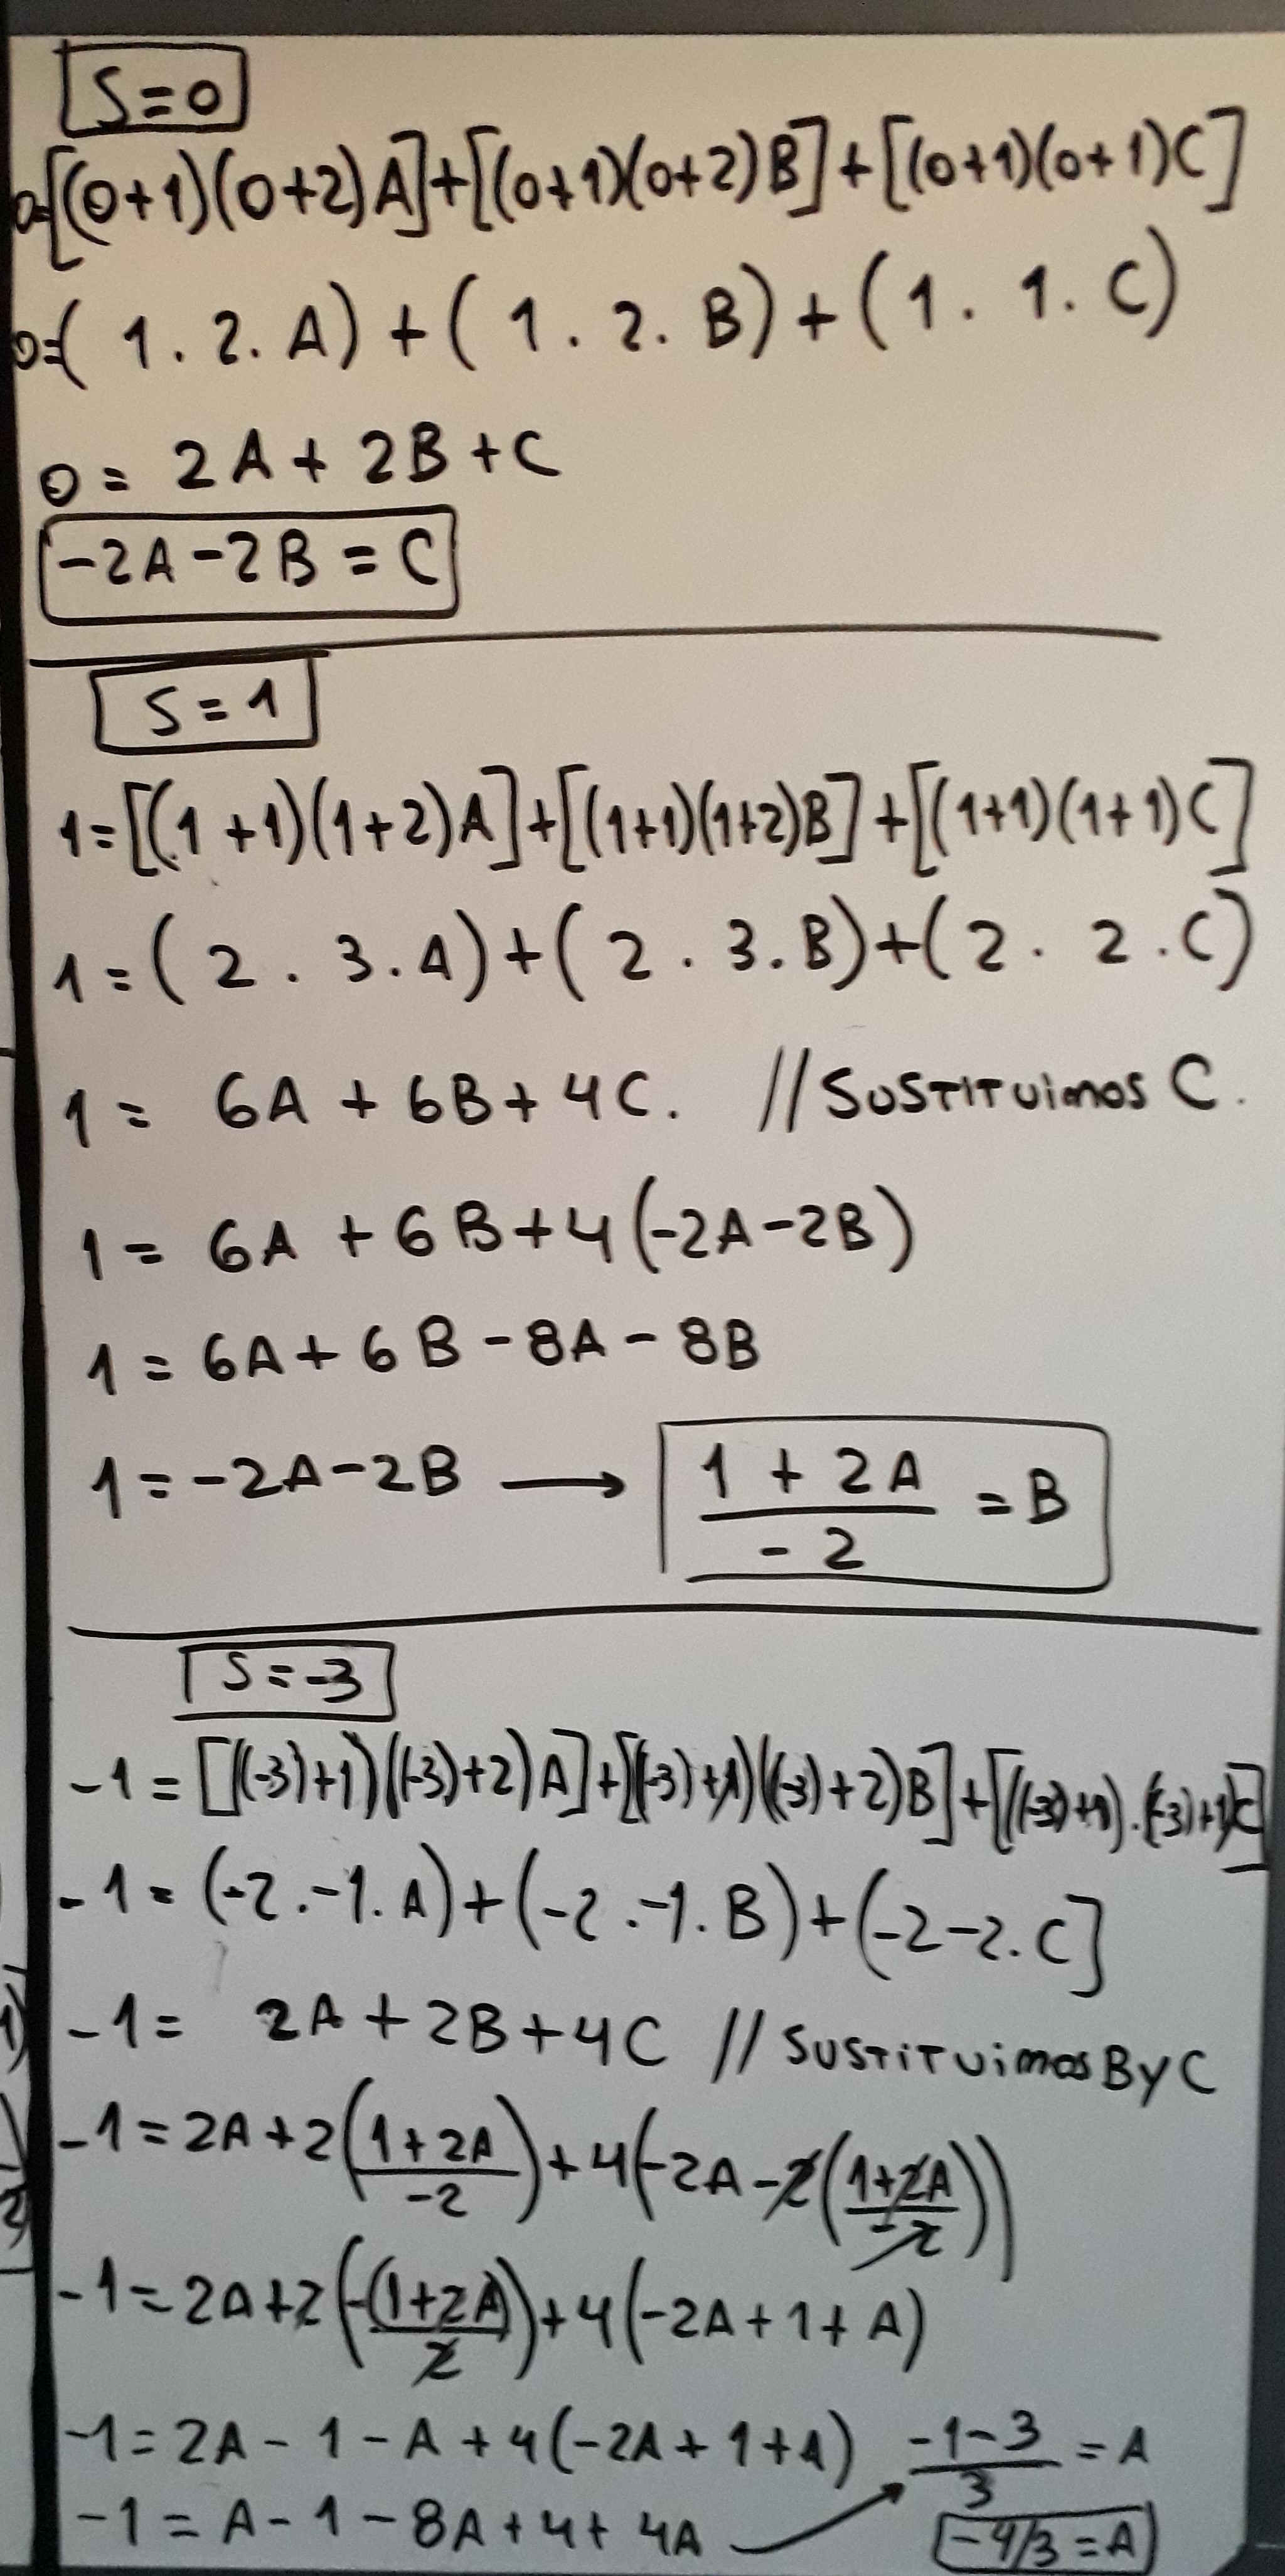 S=0
0=[(0+1)(0+2)A]+[(0+1)(0+2)B]+[(0+1)(0+1)C]
0=(1.2.A)+(1.2.B)+(1.1.C)
0=2A+2B+C
-2A-2B=C
S=1
1=[(1+1)(1+2)A]+[(1+1)(1+2)B]+[(1+1)(1+1)C]
1=(2.3.A)+(2.3.B)+(2.2.C)
1=6A+6B+4C. //SUSTITUimos C.
1=6A+6B+4(-2A-2B)
1=6A+6B-8A-8B
1=-2A-2B → (1+2A)/-2=B
S=-3
-1=[((-3)+1)((-3)+2)A]+[((-3)+1)((-3)+2)B]+[((-3)+1).(-3)+1)C]
-1=(-2.-1.A)+(-2.-1.B)+(-2-2.C]
-1=2A+2B+4C //SUSTiTUimos B y C
-1=2A+2((1+2A)/-2)+4(-2A-2((1+2A)/-2))
-1=2A+2(-(1+2A)/2)+4(-2A+1+A)
-1=2A-1-A+4(-2A+1+A)
-1=A-1-8A+4+4A → (-1-3)/3=A
-4/3=A